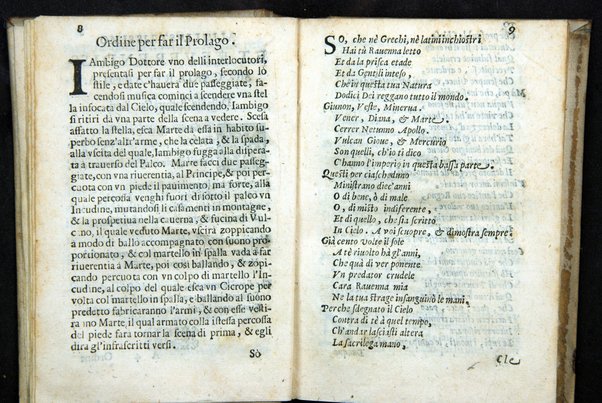 8
Ordine per far il Prolago.
IAmbigo Dottore vno delli interlocutori,
presentasi per far il prolago, secondo lo
stile, e date c'hauera due passeggiate, fa-
cendosi musica cominci a scendere vna stel
la infocata dal Cielo, quale scendendo, Iambigo
si ritiri da vna parte della scena a vedere. Scesa
affatto la stella, esca Marte da essa in habito su-
perbo senz'altr'arme, che la celata, & la spada,
alla vscita del quale, Iambigo fugga alla dispera-
ta a trauerso del Palco. Marte facci due passeg-
giate, con vna riuerentia, al Principe, & poi per-
cuota con vn piede il pauimento, ma forte, alla
quale percossa venghi fuori di sotto il palco vn
Incudine, mutandosi li casamenti in montagne,
& la prospettiua nella cauerna, & fucina di Vul-
cano, il quale veduto Marte, vscirà zoppicando
a modo di ballo accompagnato con suono pro-
portionato, & col martello in spalla vada a far
riuerentia à Marte, poi così ballando, & zopi-
cando percuota con vn colpo di martello l'In-
cudine, al colpo del quale esca vn Ciclope per
volta col martello in spalla, e ballando al suono
predetto fabricaranno l'armi, & con esse vesti-
ranno Marte, il qual armato colla istessa percossa
del piede fara tornar la scena di prima, & egli
dira gl'infrascritti versi.
Sò
9
SO, che nè Grechi, nè latini inchiostri
Hai tù Rauenna letto
Et da la prisca etade
Et da Gentili inteso,
Che in questa tua Natura
Dodici Dei reggano tutto il mondo.
Giunon, Veste, Minerua.
Vener, Diana, & Marte.
Cerrer Nettunno Apollo.
Vulcan Gioue, & Mercurio
Son quelli, ch'io ti dico
C'hanno l'imperio in questa bassa parte.
Questi per ciascheduno
Ministrano diec'anni
O di bene, ò di male
O, di misto indiferente,
Et di quello, che stà scritto
In Cielo. A voi scuopre, & dimostra sempre.
Già cento volte il sole
A tè riuolto hà gl'anni,
Che quà di ver ponente
Vn predator crudele
Cara Rauenna mia
Ne la tua strage insanguinò le mani.
Perche sdegnato il Cielo
Contra di tè à quel tempo,
Ch'andar lasciasti altera
La sacrilega mano.
Cle